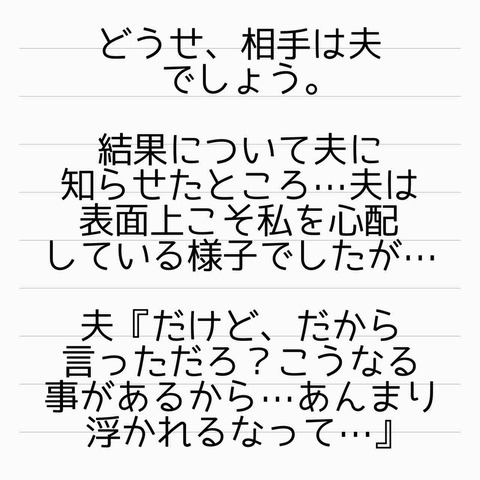 どうせ、相手は夫
でしょう。
結果について夫に
知らせたところ…夫は
表面上こそ私を心配
している様子でしたが…
夫『だけど、だから
言っただろ？こうなる
事があるから…あんまり
浮かれるなって…』